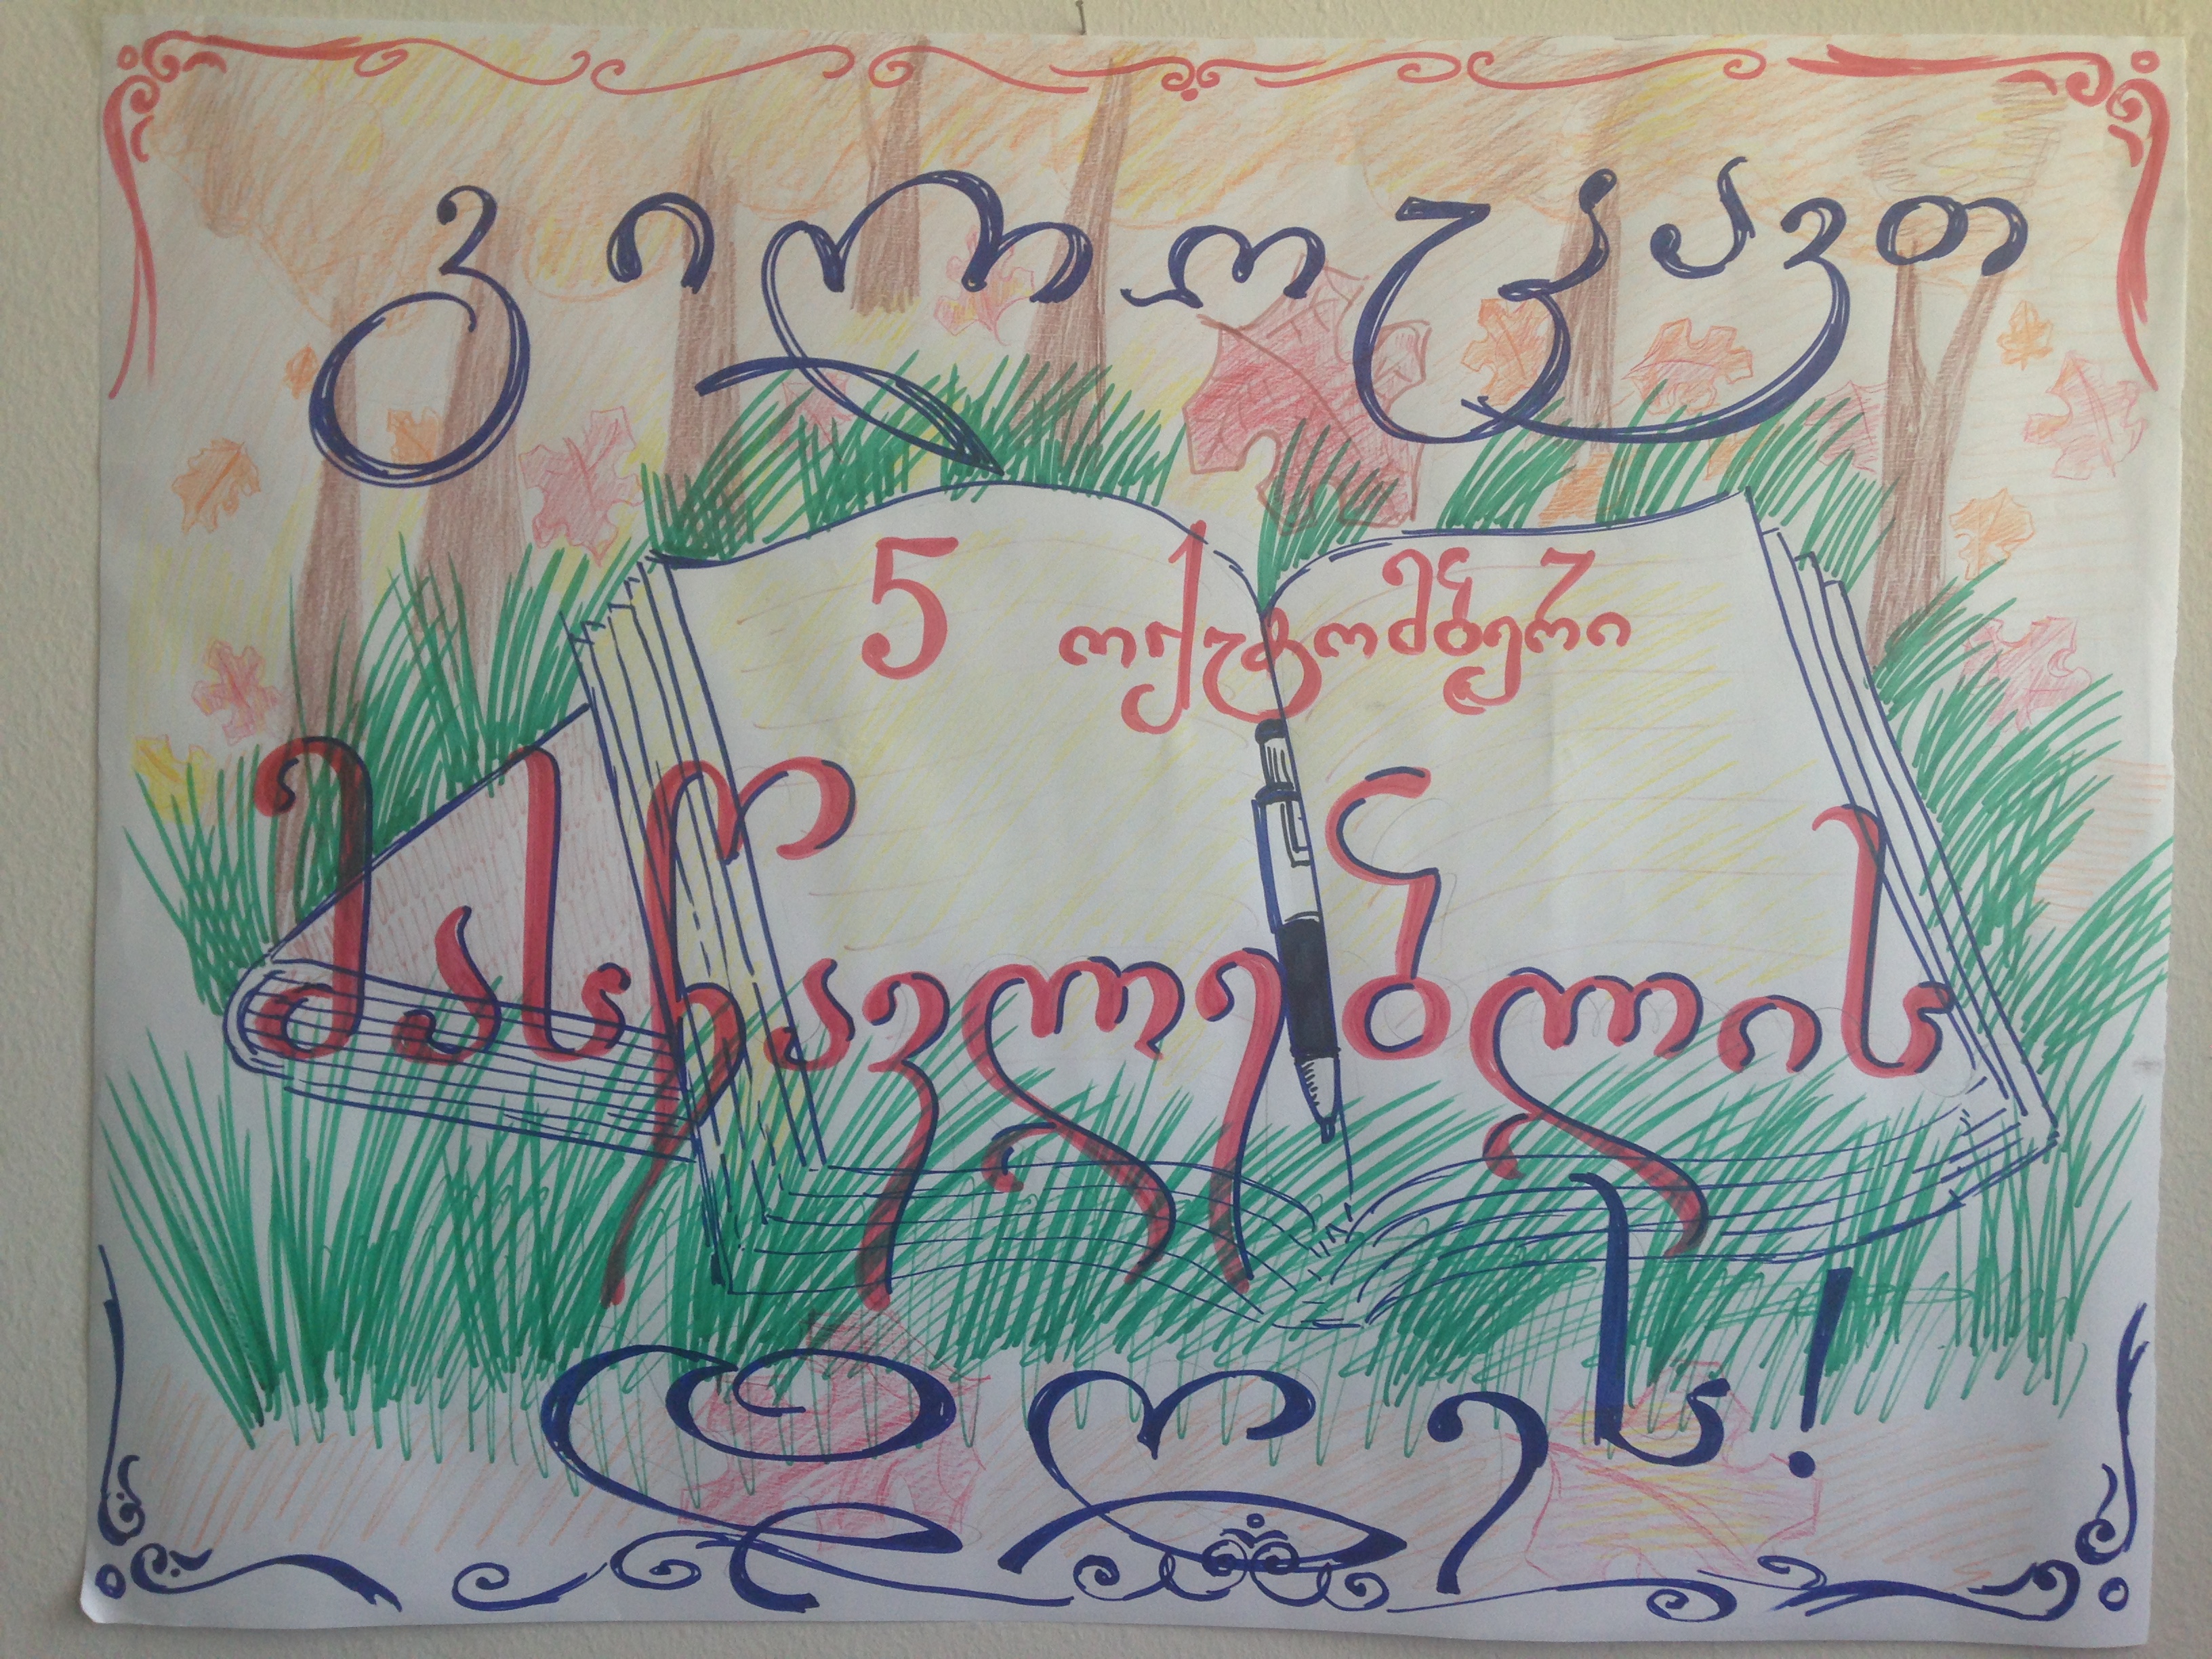 გილოცავთ
5 ოქტომბერი
მასწავლებლის
დღეს!